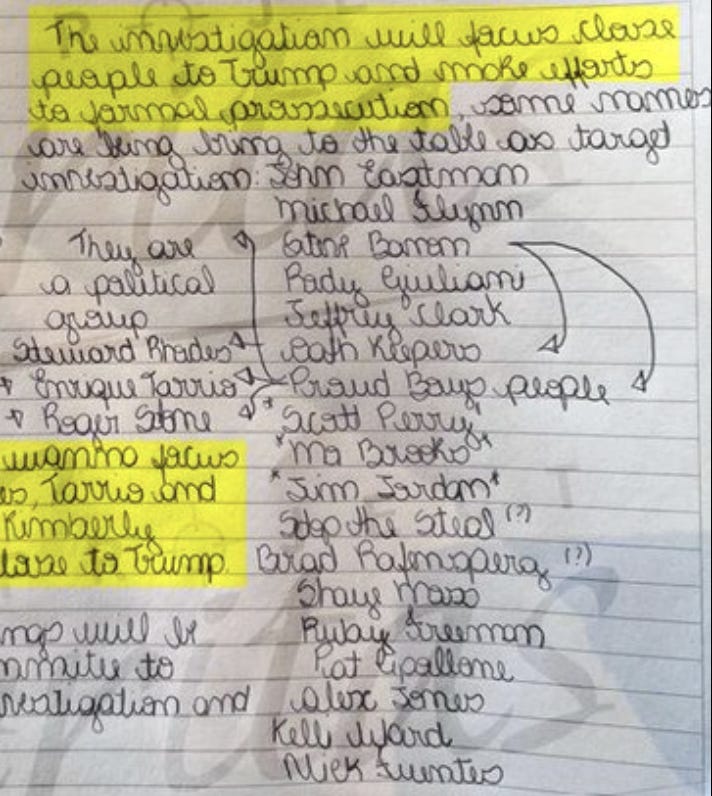 The investigation will focus close
people to Trump and make efforts
to formal prossecution, some names
are being bring to the table as target
investigation: John Eastman
Michael Flynn
They are
a political
group
Steward Rhodes
Enrique Tarrio
Roger Stone
Bannon
Rudy Giuliani
Jeffrey Clark
Oath Keepers
Proud Boys people
*Scott Perry*
*Mo Brooks*
*Jim Jordan*
Stop the Steal (?)
Brad (?)
Shaye Moss
Rubay Freeman
Pat Cipollone
Alex Jones
Kelli Ward
Nick Fuentes
focus
Tarrio and
Kimberly
to Trump.
will be
to
and